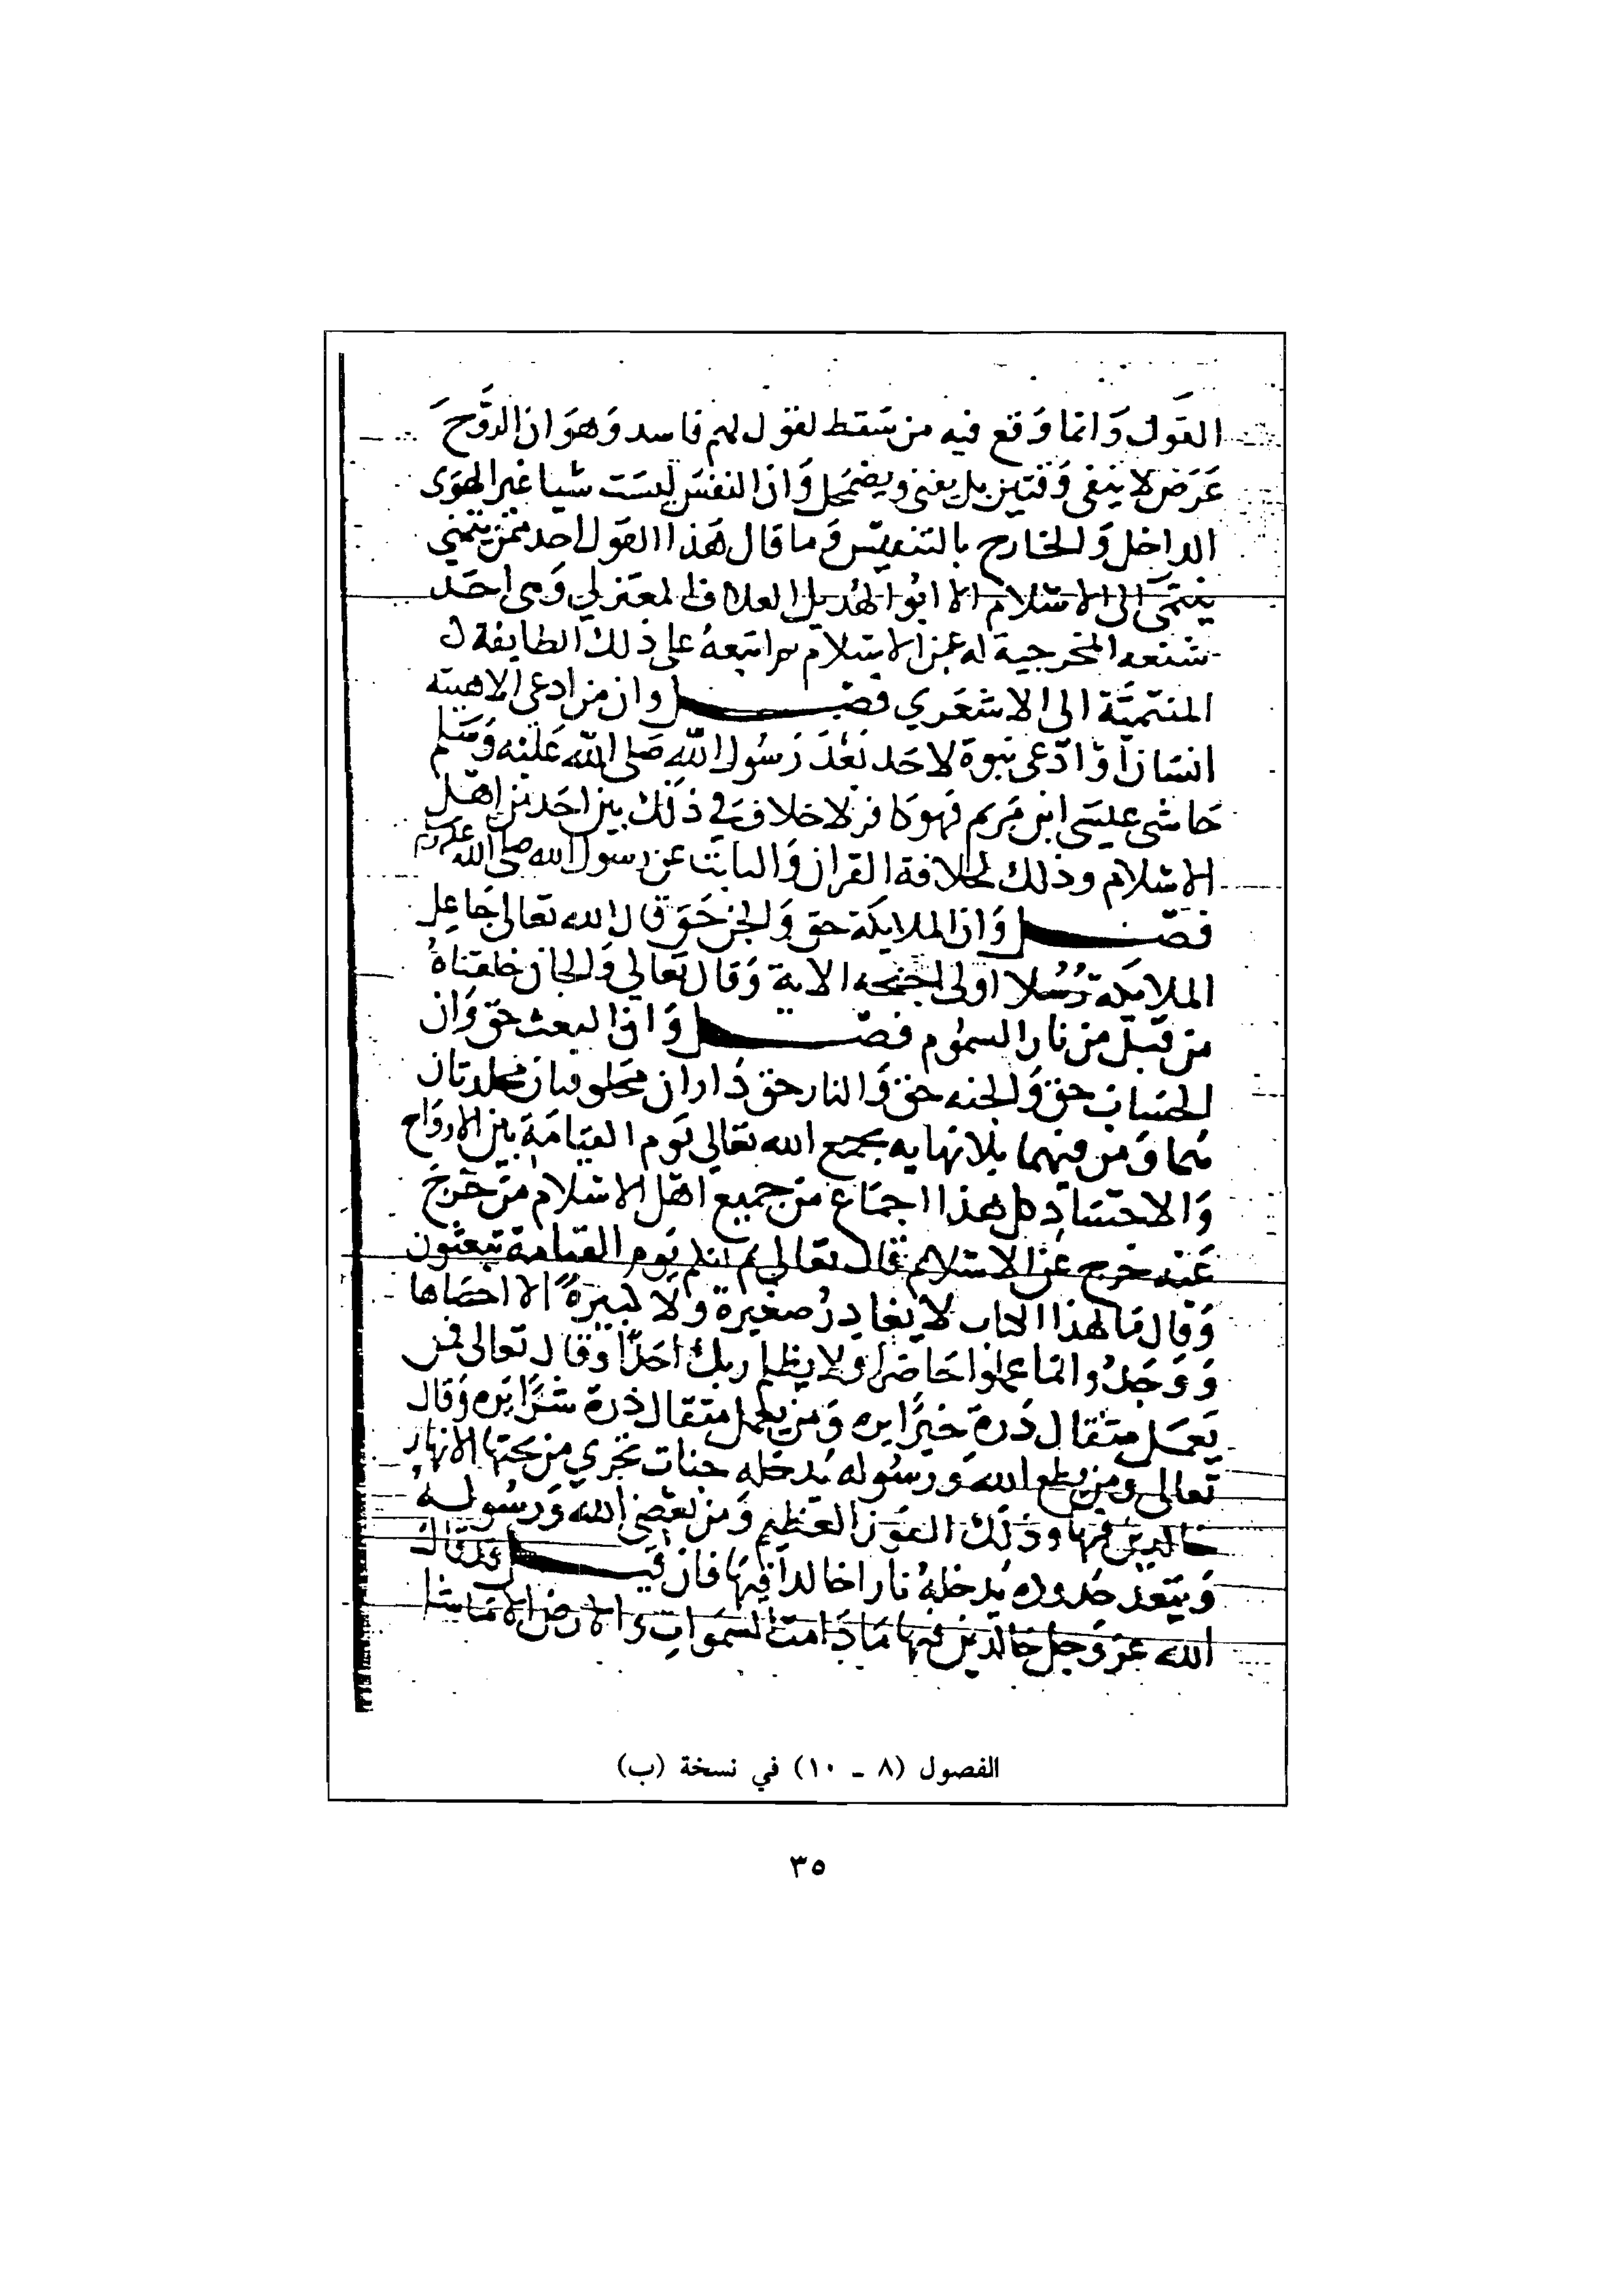 القول وانما وقع فيه من سقط لقول لهم فاسد وهو ان الروح
عرض لا يبقى وقتين بل يفنى ويضمحل وان النفس ليست شيا غير الهوى
الداخل والخارج بالتنفس وما قال هذا القول احد ممن ينتمي
ينتمى الى الاسلام الا ابو الهذيل العلاف المعتزلي وهى احد
شنعه المخرجية له عن الاسلام واتبعه على ذلك الطايفة
المنتمية الى الاشعري فصل وان من ادعى الاهية
انسان او ادعى نبوة لاحد بعد رسول الله صلى الله عليه وسلم
حاشى عيسى ابن مريم فهو كافر لا خلاف في ذلك بين احد من اهل
الاسلام وذلك لخلافة القران والثابت عن رسول الله صلى الله عليه وسلم
فصل وان الملايكة حق والجن حق قال الله تعالى جاعل
الملايكة رسلا اولى اجنحه الاية وقال تعالي والجان خلقناه
من قبل من نار السموم فصل وان البعث حق وان
الحساب حق والجنه حق والنار حق داران مخلوقتان مخلدتان
هما ومن فيهما بلا نهايه يجمع الله تعالي يوم القيامة بين الارواح
والاجساد كل هذا اجماع من جميع اهل الاسلام من خرج
عنه خرج عن الاسلام قال تعالي ثم انكم يوم القيامة تبعثون
وقال مالهذا الكتاب لا يغادر صغيرة ولا كبيرة الا احصاها
ووجدوا ما عملوا حاضرا ولا يظلم ربك احدا وقال تعالى فمن
يعمل مثقال ذرة خيرا يره ومن يعمل مثقال ذرة شرا يره وقال
تعالى ومن يطع الله ورسوله يدخله جنات تجري من تحتها الانهار
خالدين فيها وذلك الفوز العظيم ومن يعص الله ورسوله
ويتعد حدوده يدخله نارا خالدا فيها فان قيل قد قال
الله عز وجل خالدين فيها ما دامت السموات والارض الا ما شا
الفصول (٨ - ١٠) في نسخة (ب)
٣٥